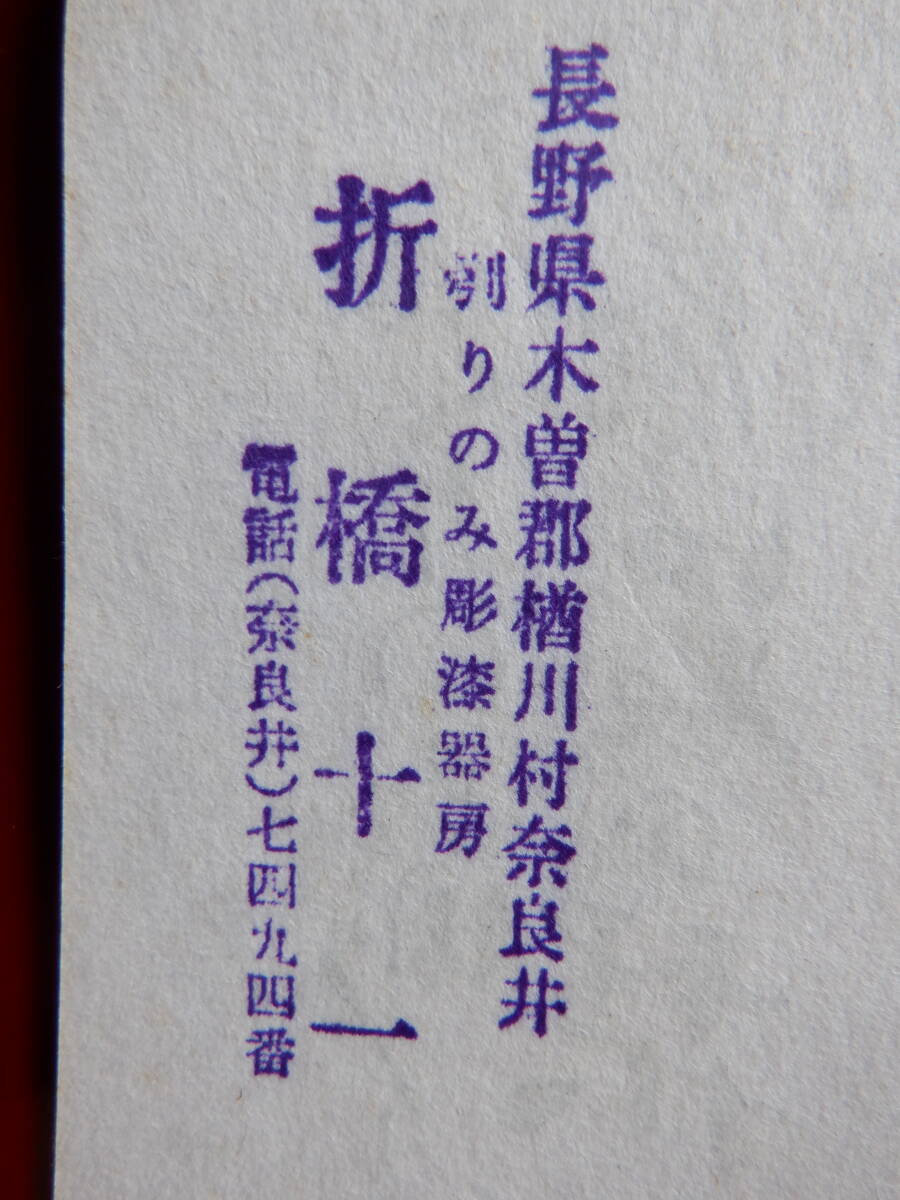 長野県木曽郡楢川村奈良井
刳りのみ彫漆器房
折橋十一
電話(奈良井)七四九四番